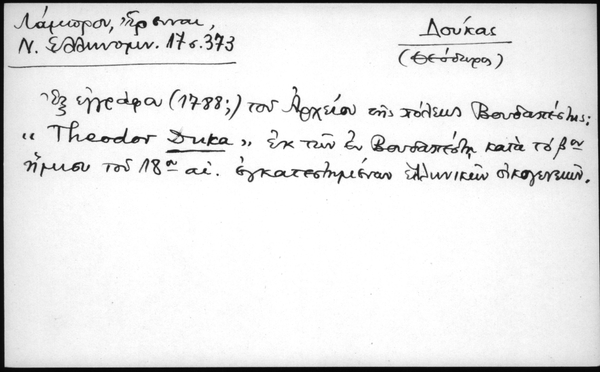 Λάμπρου, Ἔρευναι,
Ν. Ἑλληνομν. 17 σ. 373
Δούκας
(Θεόδωρος)
Ἐξ ἐγγράφου (1788;) τοῦ Ἀρχείου τῆς πόλεως Βουδαπέστης:
"Theodor Duka", ἐκ τῶν ἐν Βουδαπέστῃ κατὰ τὸ βον
ἥμισυ τοῦ 18ου αἰ. ἐγκατεστημένων ἑλληνικῶν οἰκογενειῶν.